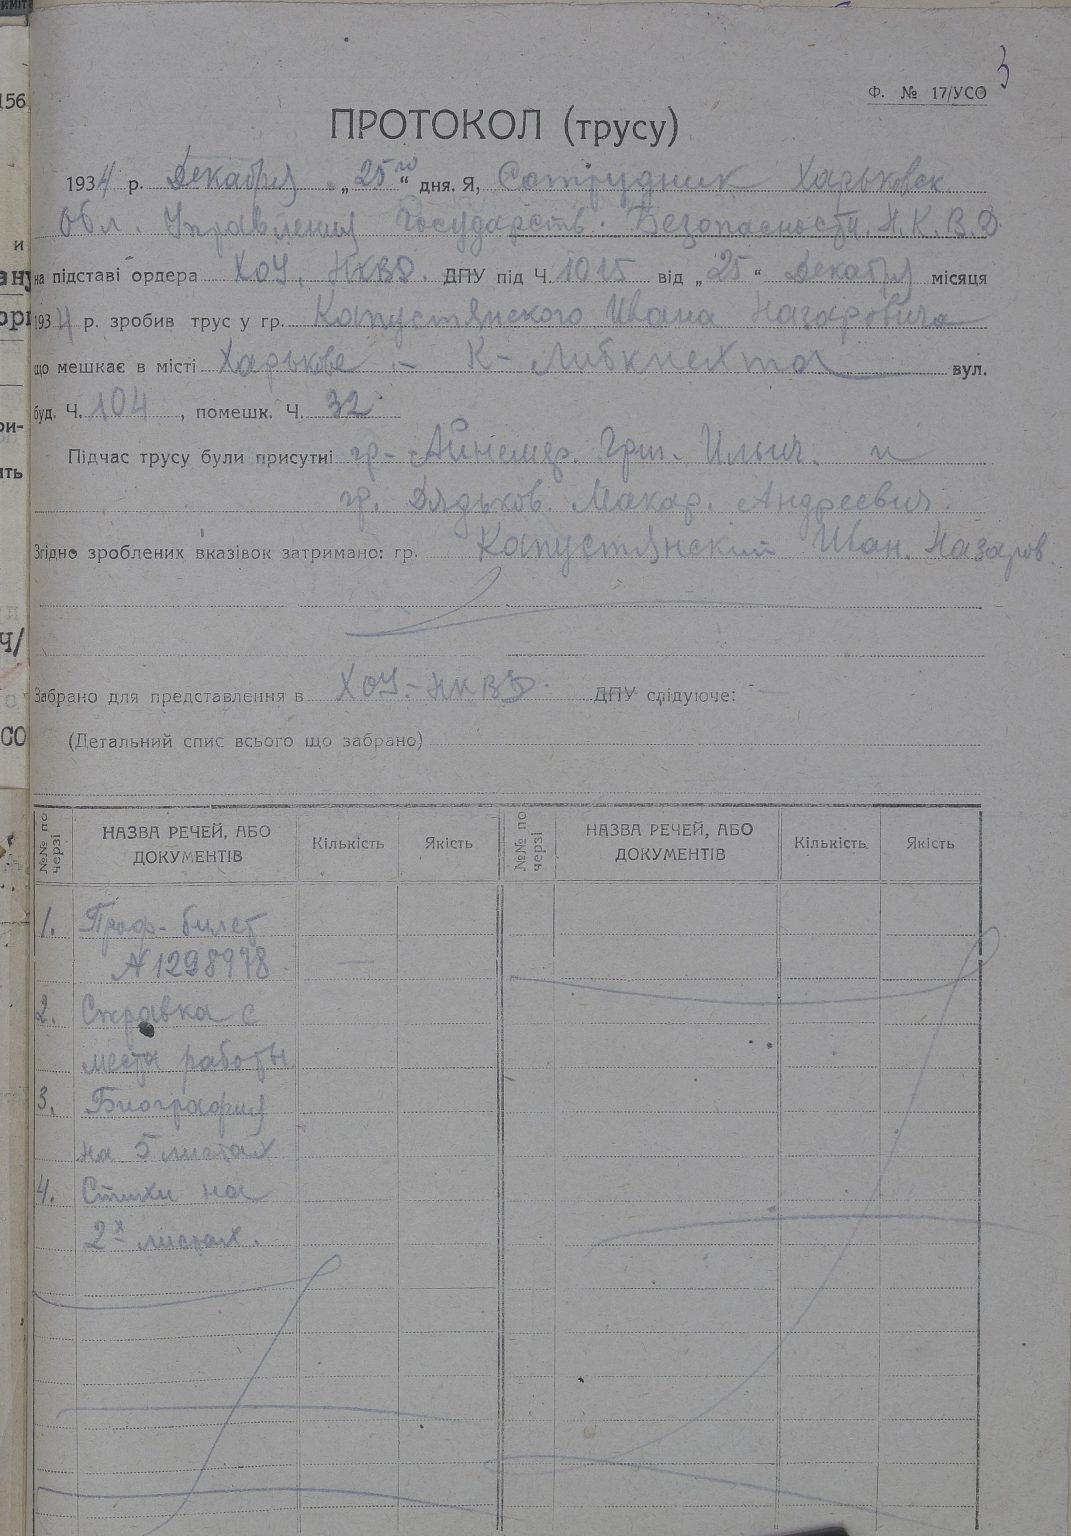 3
Ф. № 17/УСО
ПРОТОКОЛ (трусу)
1934 р. Декабря „25го“ дня. Я, Сотрудник Харьковск.
Обл. Управления Государств. Безопасности. Н.К.В.Д.
на підставі ордера ХОУ. НКВД. ДПУ під Ч. 1015 від „25“ Декабря місяця
1934 р. зробив трус у гр. Капустянского Ивана Назаровича
що мешкає в місті Харькове – К-Либкнехта вул.
буд. Ч. 104, помешк. Ч. 32
Підчас трусу були присутні гр- Григ. Ильич. и
гр. Дядьков. Макар. Андреевич.
Згідно зроблених вказівок затримано: гр. Капустянский Иван. Назаров
Забрано для представлення в ХОУ-НКВД. ДПУ слідуюче:
(Детальний спис всього що забрано)
№№ по черзі
НАЗВА РЕЧЕЙ, АБО ДОКУМЕНТІВ
Кількість
Якість
№№ по черзі
НАЗВА РЕЧЕЙ, АБО ДОКУМЕНТІВ
Кількість
Якість
1. Проф- билет
№ 1298978 —
2. Справка с
места работы
3. Биография
на 5 листах
4. Стихи на
2х листах.
156
и
ри-
ить
Ч/
СО